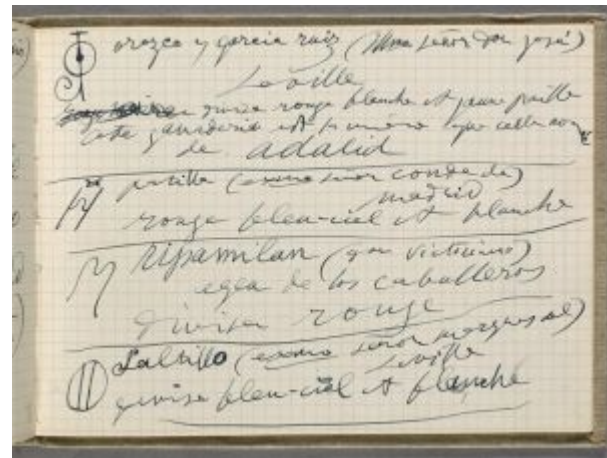 orozco y garcia ruiz (señor don josé)
Seville
divise rouge blanche et jaune paille
cette ganaderia est la même que celle
de adalid
patilla (exmo señor conde de)
madrid
rouge bleu-ciel et blanche
ripamilan (victoriano)
egea de los caballeros
divisa rouge
Saltillo (exmo señor marques del)
Seville
divise bleu-ciel et blanche